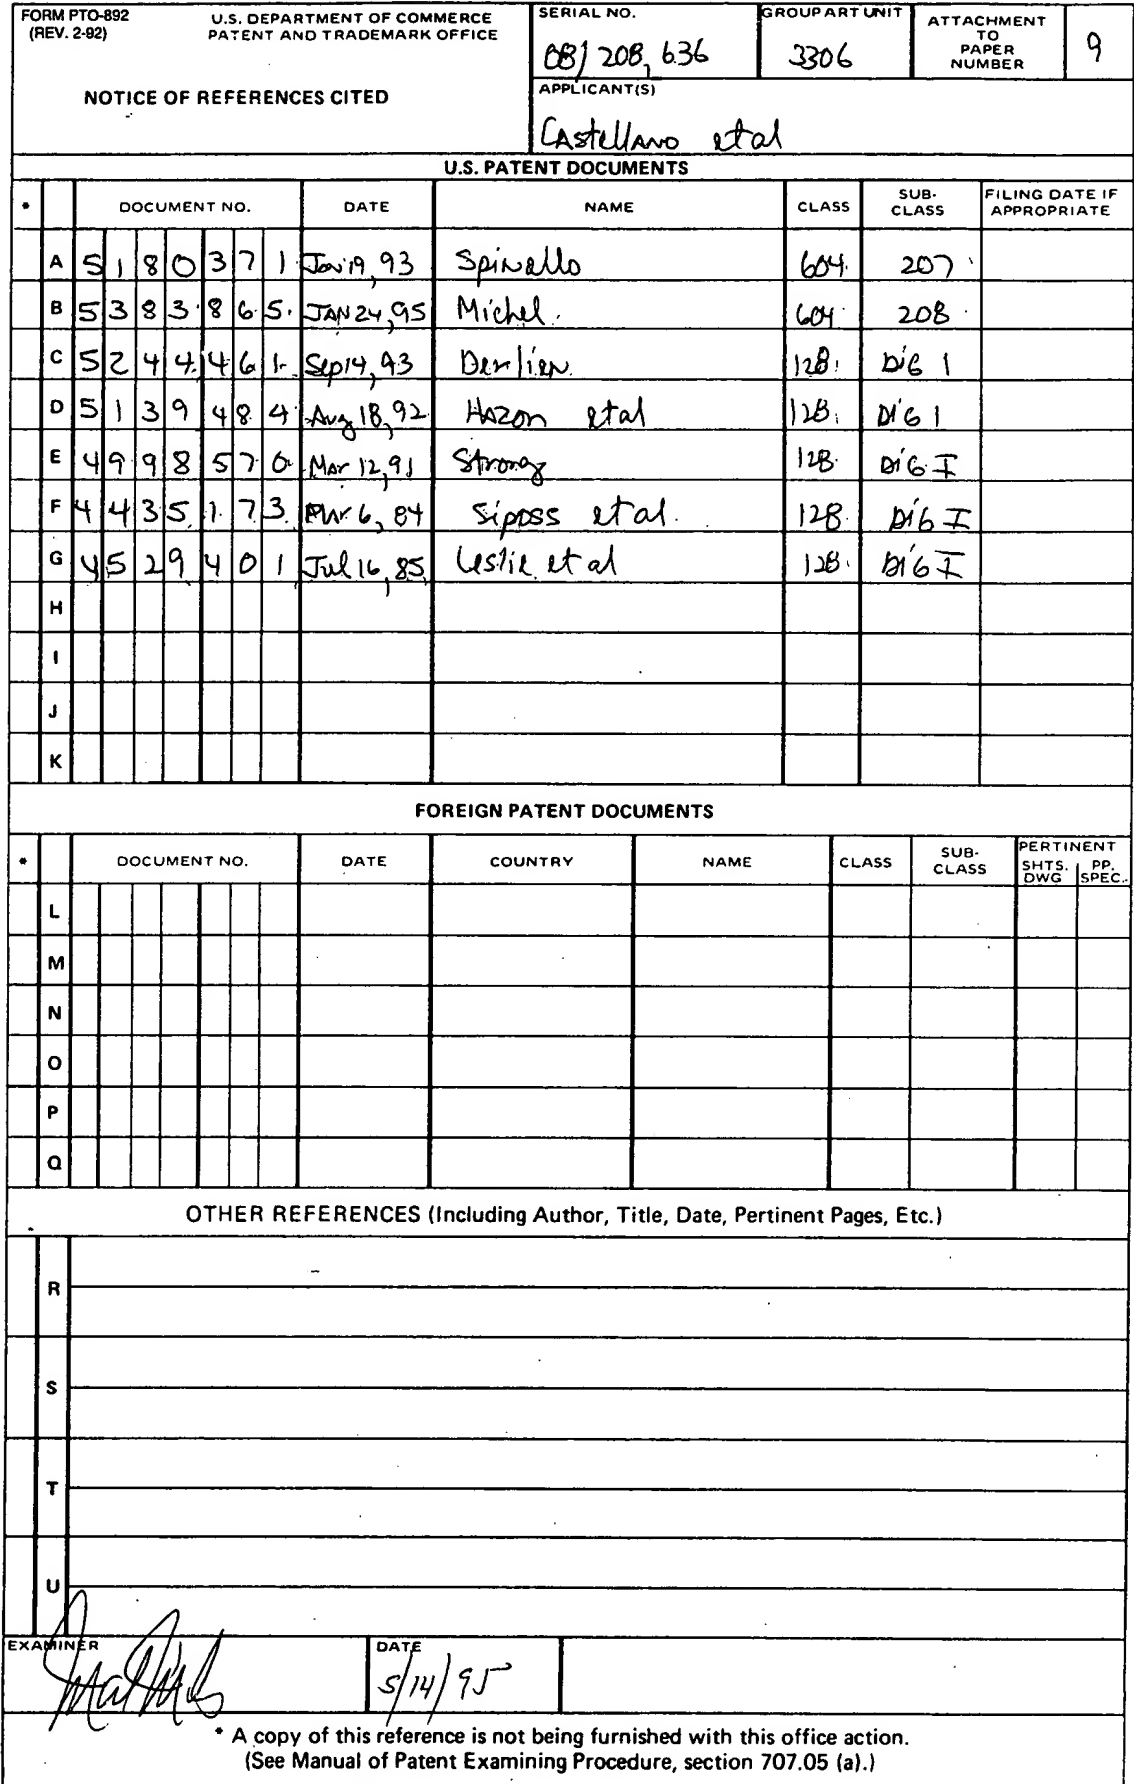 FORM PTO-892
(REV. 2-92)
U.S. DEPARTMENT OF COMMERCE
PATENT AND TRADEMARK OFFICE
NOTICE OF REFERENCES CITED
SERIAL NO.
08/208,636
GROUP ART UNIT
3306
ATTACHMENT
TO
PAPER
NUMBER
9
APPLICANT(S)
Castellano et al
U.S. PATENT DOCUMENTS
* DOCUMENT NO. DATE NAME CLASS SUB-CLASS FILING DATE IF APPROPRIATE
A 5180371 Jan 19, 93 Spinello 604 207
B 5383865 JAN 24, 95 Michel 604 208
C 5244461 Sep 14, 93 Derlien 128 Dig 1
D 5139484 Aug 18, 92 Hazon et al 128 Dig 1
E 4998570 Mar 12, 91 Strong 128 Dig I
F 4435173 Mar 6, 84 Siposs et al 128 Dig I
G 4529401 Jul 16, 85 Leslie et al 128 Dig I
H
I
J
K
FOREIGN PATENT DOCUMENTS
* DOCUMENT NO. DATE COUNTRY NAME CLASS SUB-CLASS PERTINENT SHTS. DWG PP. SPEC.
L
M
N
O
P
Q
OTHER REFERENCES (Including Author, Title, Date, Pertinent Pages, Etc.)
R
S
T
U
EXAMINER
DATE
5/14/95
* A copy of this reference is not being furnished with this office action.
(See Manual of Patent Examining Procedure, section 707.05 (a).)